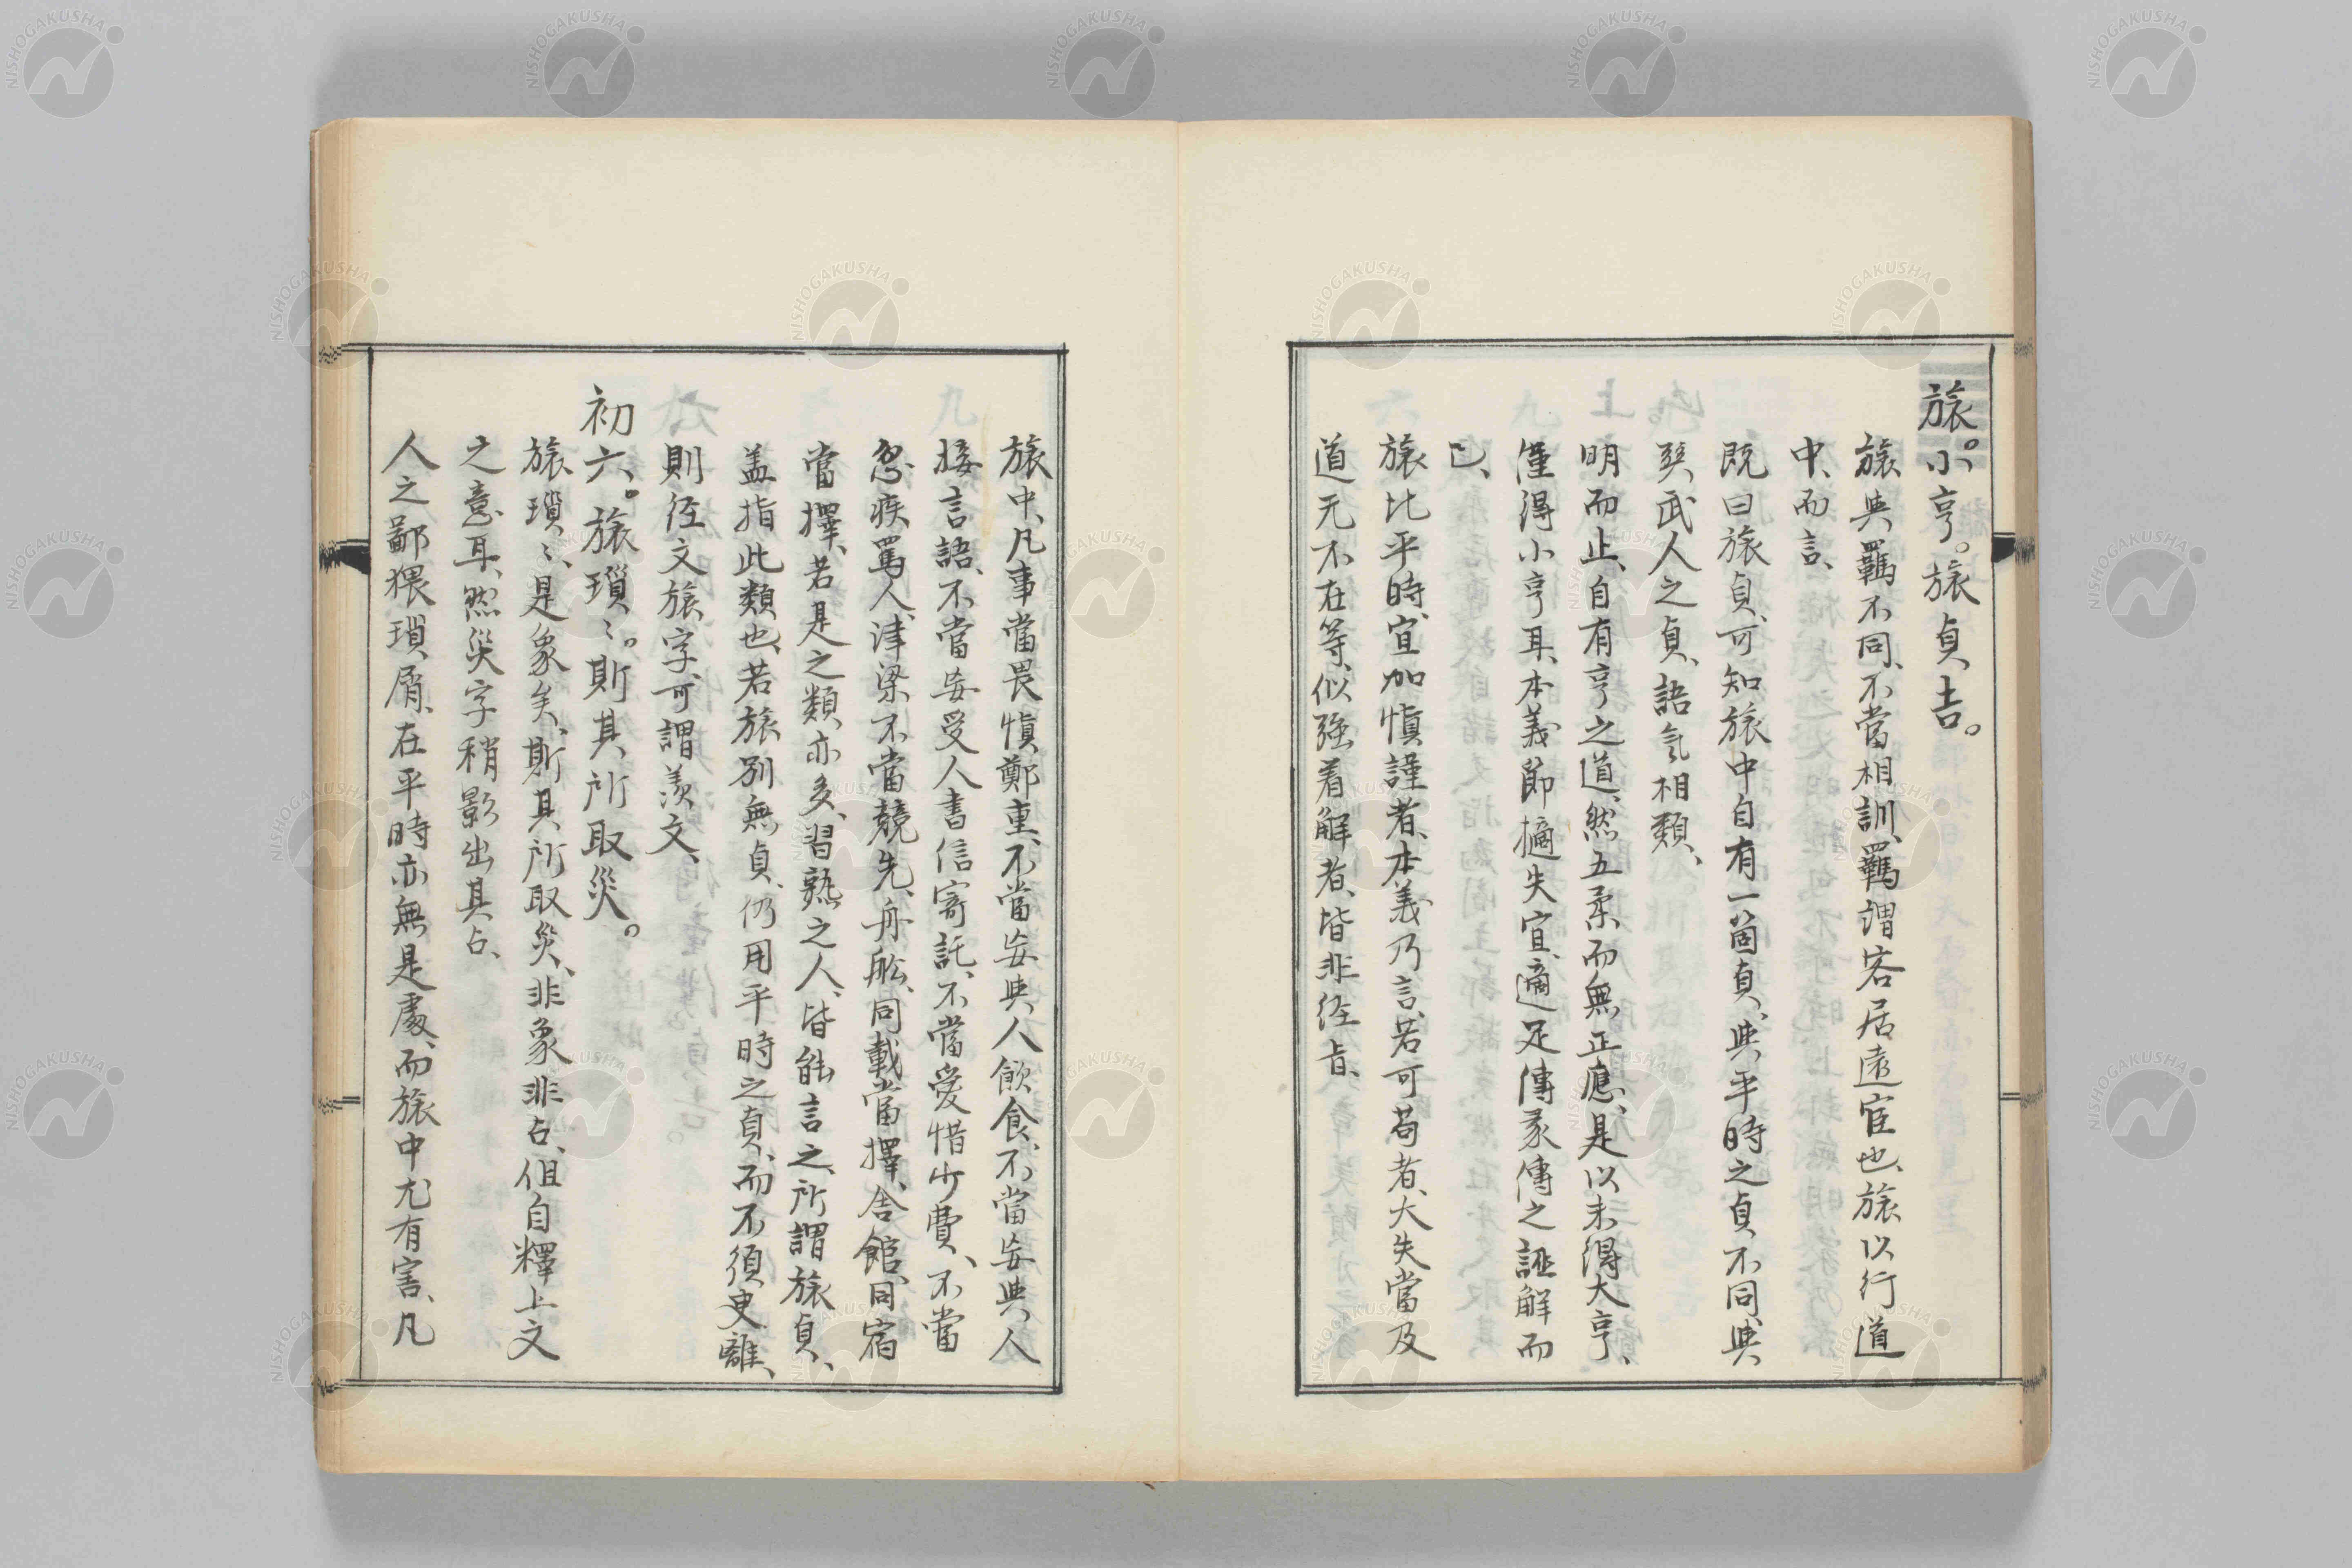 旅。小亨。旅貞、吉。
旅與羈不同、不當相訓、羈謂客居遠宦也、旅以行道
中、而言、
既曰旅貞、可知旅中自有一箇貞、與平時之貞不同、與
巽武人之貞、語氣相類、
明而止、自有亨之道、然五柔而無正應、是以未得大亨、
僅得小亨耳、本義節擿失宜、適足傳彖傳之誣解而
已、
旅比平時、宜加慎謹者、本義乃言、若可苟者、大失當、及
道无不在等、似強着解者、皆非經旨、
旅中、凡事當畏慎鄭重、不當妄與人飲食、不當妄與人
接言語、不當妄受人書信寄託、不當愛惜少費、不當
忽疾罵人、津梁不當競先、舟舩同載當擇、舎館同宿
當擇、若是之類、亦多、習熟之人、皆能言之、所謂旅貞、
盖指此類也、若旅別無貞、仍用平時之貞、而不須更離、
則経文旅字、可謂羨文、
初六。旅瑣〻。斯其所取災。
旅瑣〻、是象矣、斯其所取災、非象非占、但自釋上文
之意耳、然災字稍影出其占、
人之鄙猥瑣屑、在平時亦無是處、而旅中尤有害、凡
NISHOGAKUSHA